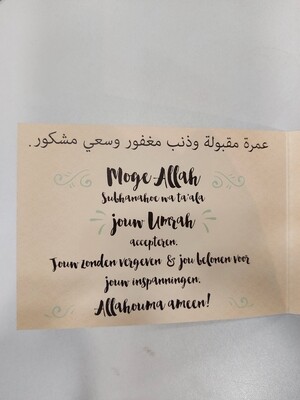 عمرة مقبولة وذنب مغفور وسعي مشكور.
Moge Allah
Subhanahoe wa ta'ala
jouw Umrah
accepteren.
Jouw zonden vergeven & jou belonen voor
jouw inspanningen.
Allahouma ameen!